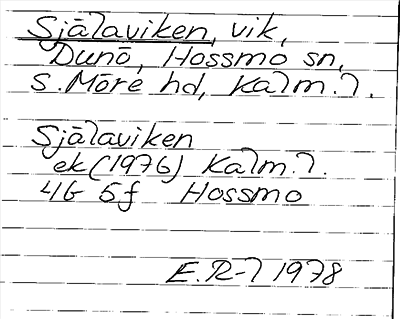 Själaviken, vik,
Dunö, Hossmo sn,
S. Möre hd, Kalm. l.
Själaviken
ek (1976) Kalm. l.
4G 5f Hossmo
E. R-l 1978